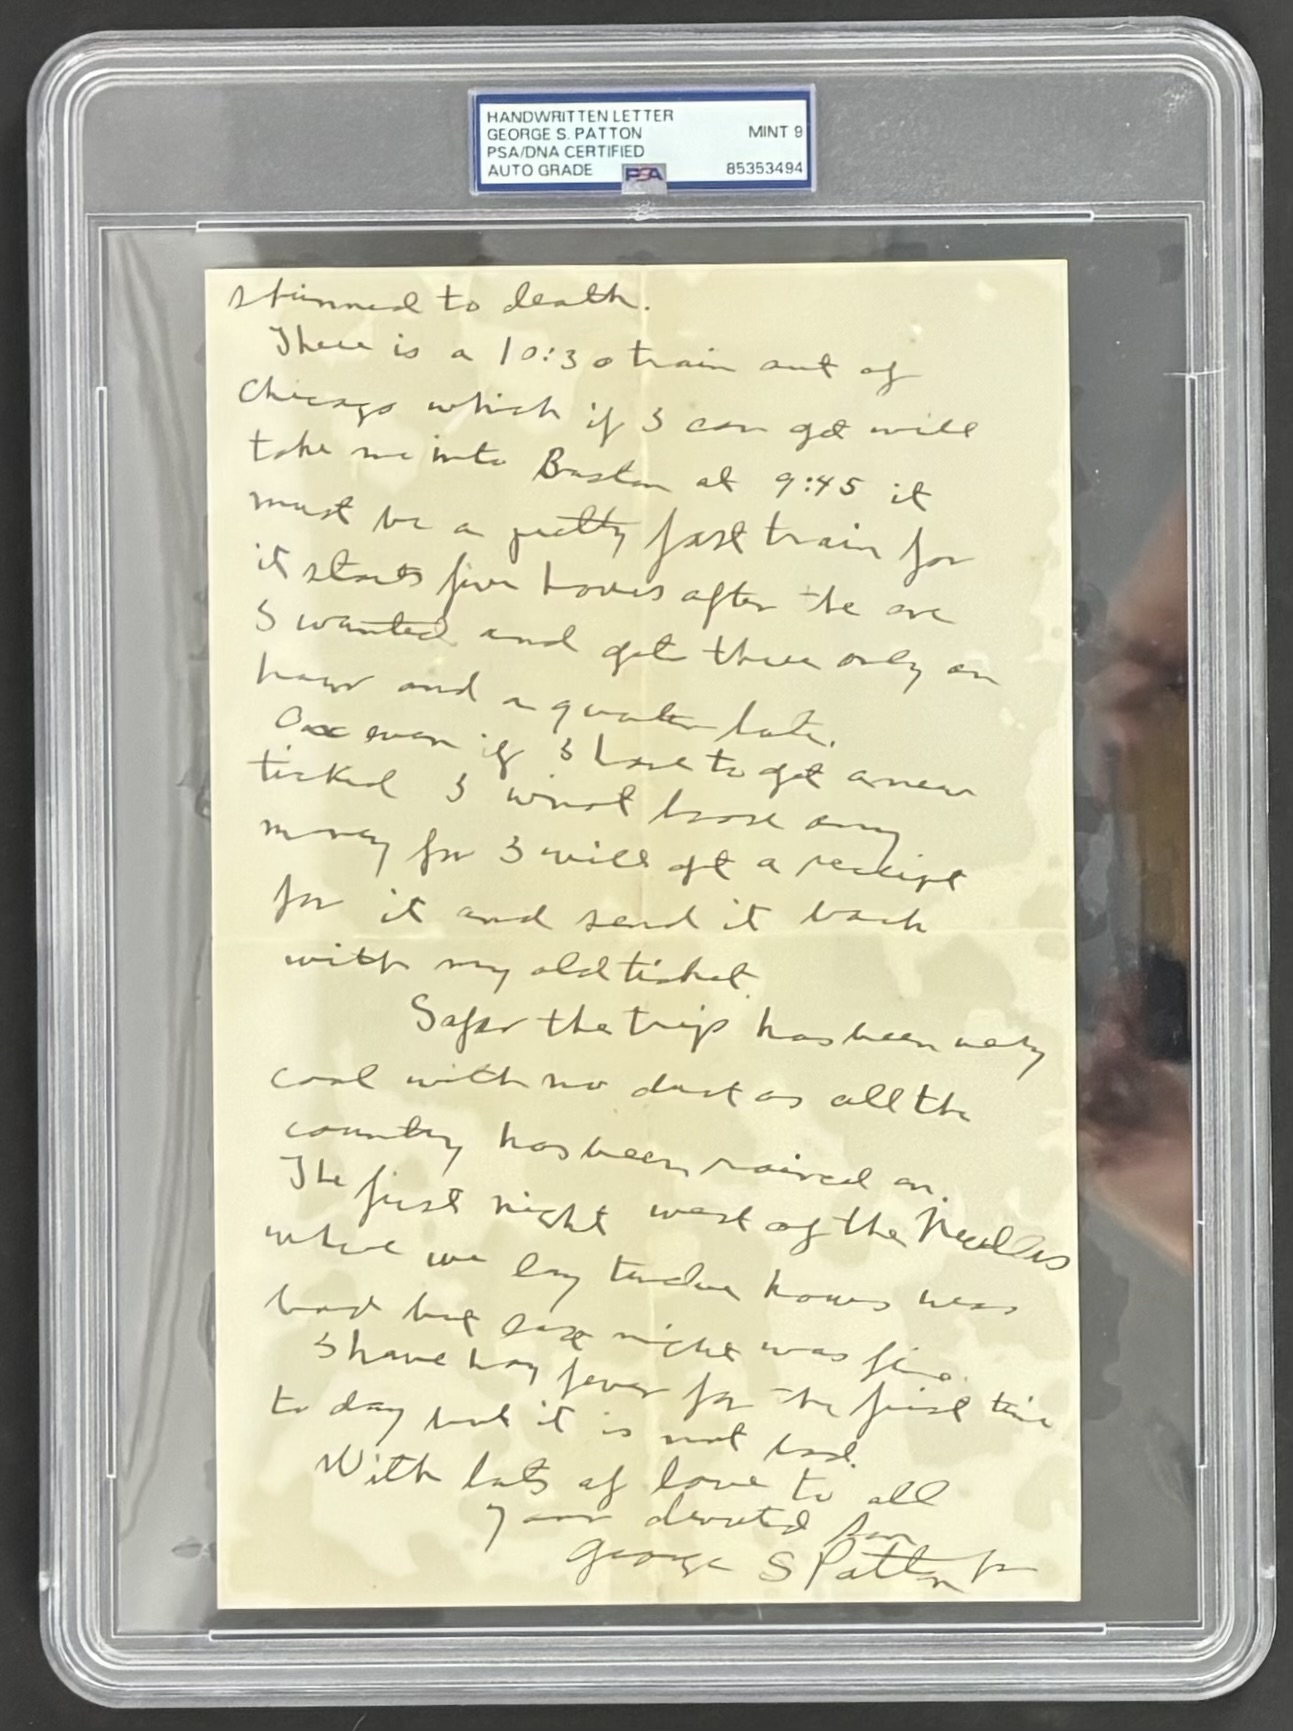 HANDWRITTEN LETTER
GEORGE S. PATTON MINT 9
PSA/DNA CERTIFIED
AUTO GRADE PSA 85353494
to death.
There is a 10:30 train out of
Chicago which if I can get will
take me into Boston at 9:45 it
must be a pretty fast train for
it starts five hours after the one
I wanted and gets there only an
hour and a quarter late.
even if I have to get a new
ticket I loose any
money for I will get a receipt
for it and send it back
with my old ticket.
Safar the trip has been very
cool with no dust as all the
country has been rained on.
The first night west of the Needles
where we lay twelve hours was
bad but last night was fine.
I have hay fever for the first time
to day but it is not bad.
With lots of love to all
Your devoted son
George S Patton Jr